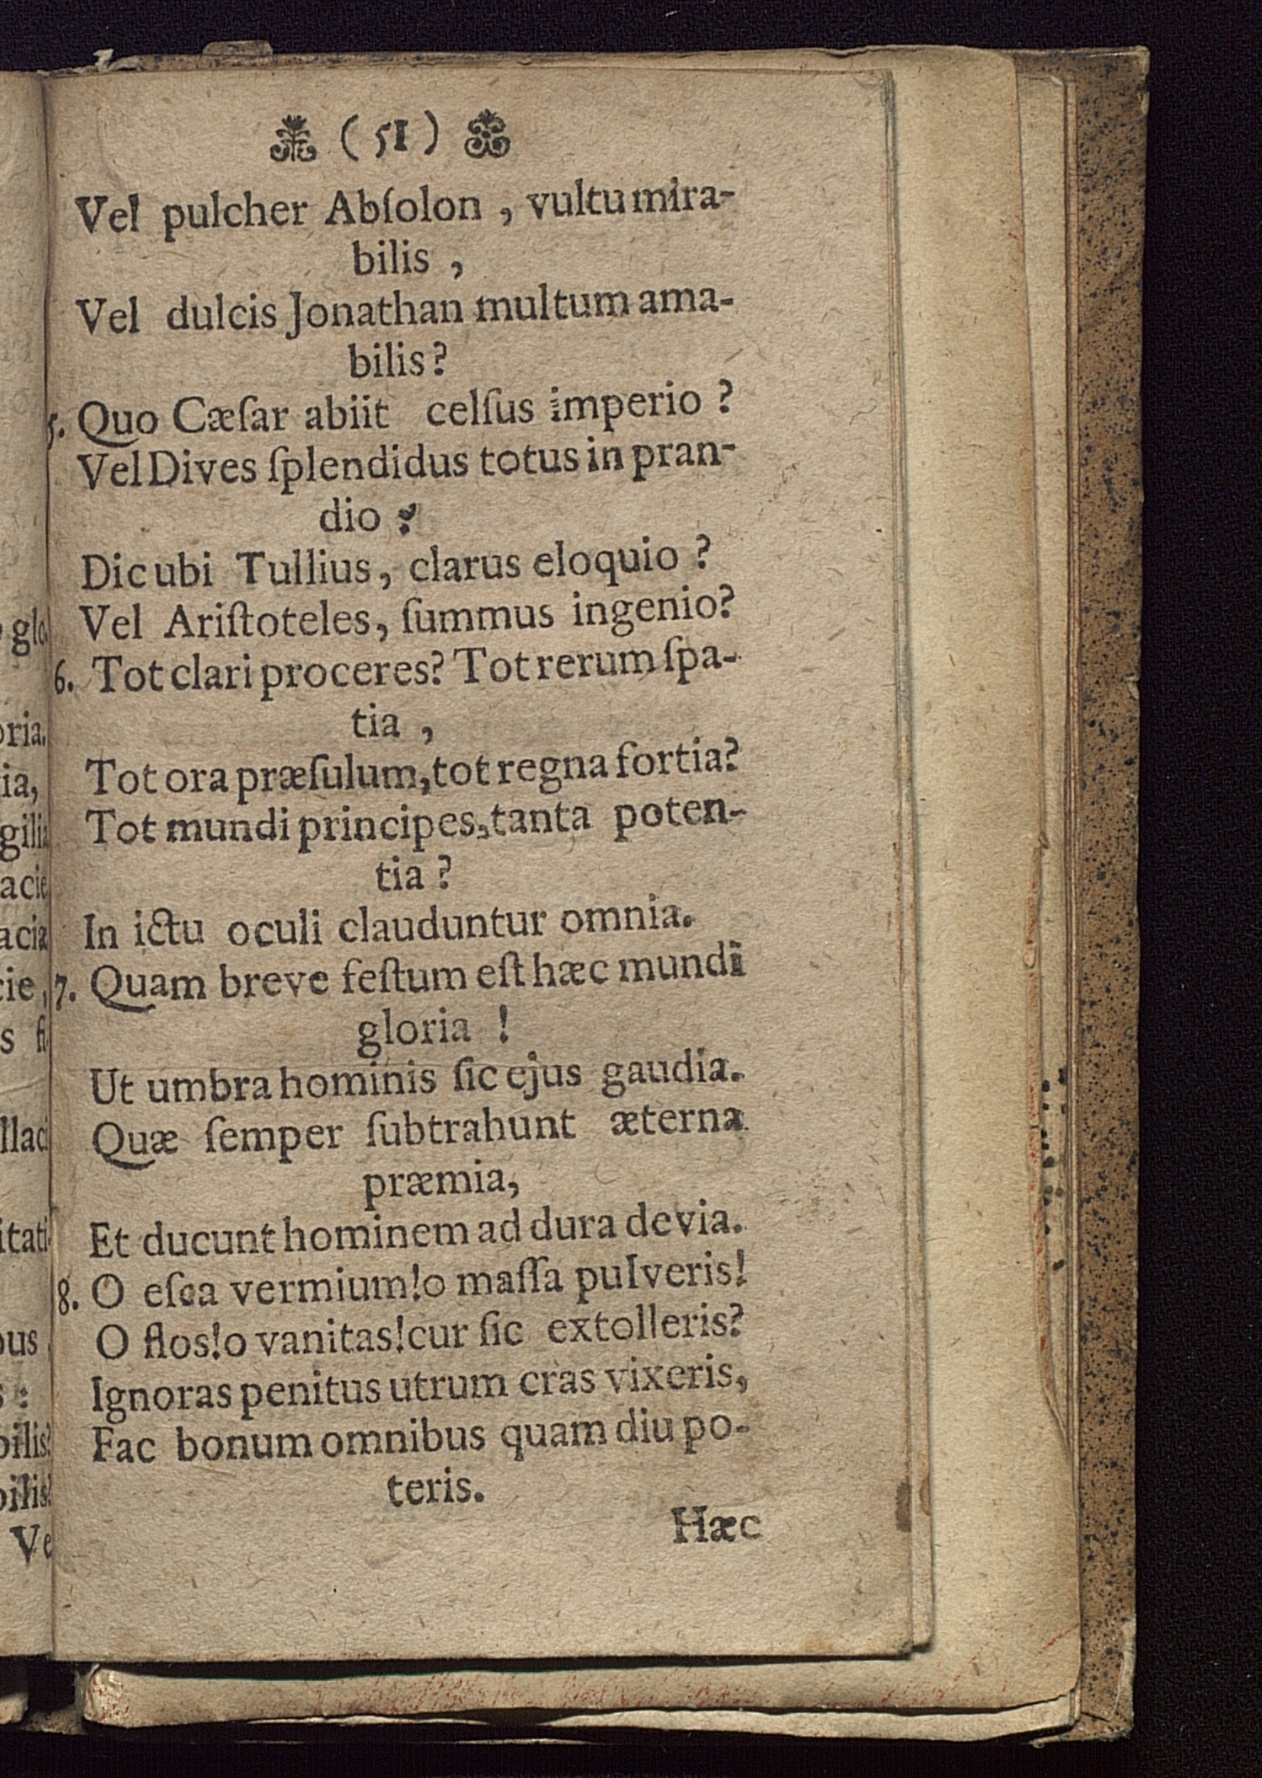 (51)
Vel pulcher Abſolon , vultu mira-
bilis ,
Vel dulcis Jonathan multum ama-
bilis?
5. Quo Cæſar abiit celſus imperio ?
Vel Dives ſplendidus totus in pran-
dio ?
Dic ubi Tullius, clarus eloquio ?
Vel Ariſtoteles, ſummus ingenio?
6. Tot clari proceres? Tot rerum ſpa-
tia ,
Tot ora præſulum, tot regna fortia?
Tot mundi principes, tanta poten-
tia ?
In ictu oculi clauduntur omnia.
7. Quam breve feſtum eſt hæc mundi
gloria !
Ut umbra hominis ſic ejus gaudia.
Quæ ſemper ſubtrahunt æterna
præmia,
Et ducunt hominem ad dura devia.
8. O eſca vermium! o maſſa pulveris!
O flos! o vanitas! cur ſic extolleris?
Ignoras penitus utrum cras vixeris,
Fac bonum omnibus quam diu po-
teris.
Hæc